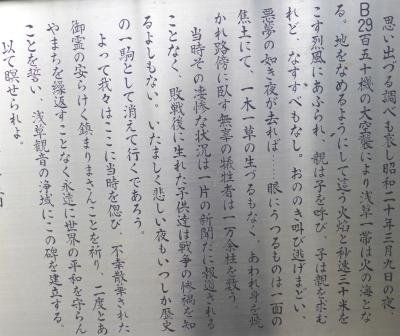 思い出づる調べも哀し昭和二十年三月九日の夜、
B29百五十機の大空襲により浅草一帯は火の海とな
る。地をなめるようにして這う火焔と秒速三十米を
こす烈風にあふられ、親は子を呼び子は親を求む
れど、なすすべもなし。おののき叫び逃げまどい、
悪夢の如き夜が去れば……眼にうつるものは一面の
焦土にて、一木一草の生づるもなく、あわれ身を焼
かれ路傍に臥す無辜の犠牲者は一万余柱を数う。
当時その凄惨な状況は一片の新聞だに報道される
ことなく、敗戦後に生れた子供達は戦争の惨禍を知
るよしもない。いたましく悲しい夜もいつしか歴史
の一駒として消えて行くであろう。
よって我々はここに当時を偲び、不幸散華された
御霊の安らけく鎮まりまさんことを祈り、二度とあ
やまちを繰返すことなく永遠に世界の平和を守らん
ことを誓い、浅草観音の浄域にこの碑を建立する。
以て瞑せられよ。